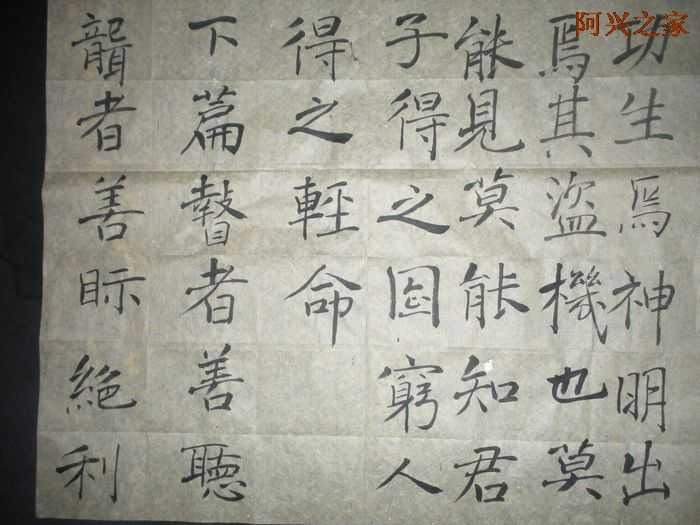 阿兴之家
功生焉神明出
焉其盗機也莫
能見莫能知君
子得之固窮人
得之輕命
下篇瞽者善聽
聾者善眎絕利